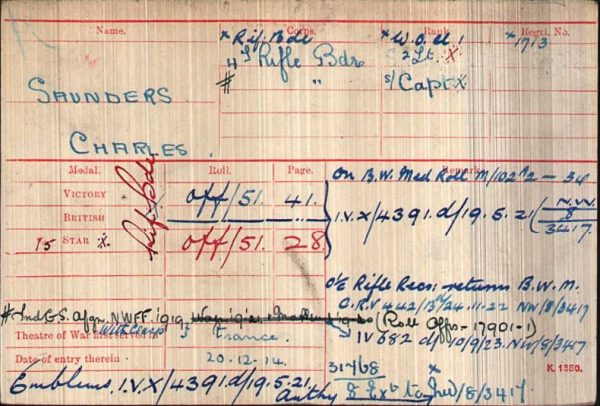 Name. Corps. Rank. Regtl. No.
x Rif. Bde x W.O. cl 1 x 1713
Rifle Bdre 2/Lt. x
# " s/ Capt. x
SAUNDERS
CHARLES.
Medal. Roll. Page. Remarks.
On B.W. Med Roll M/102
VICTORY Off/51. 41.
BRITISH
I.V.X/4391.d/19.5.21 (N.W. 8 3417.
15 STAR x. Off/51. 28
Rif. Bde
O i/c Rifle Recs: returns B.W.M.
C.R.V 442/ 24.11.22 NW/8/3417
# Ind G.S. Afgn. NWFF. 1919. (Roll Offrs - 17901-1)
Theatre of War first served in France. IV 682 d/10/9/23. NW/8/3417
Date of entry therein 20.12.14. 31768 K. 1380.
Emblems. I.V.X/4391 d/19.5.21. Authy /8/3417.